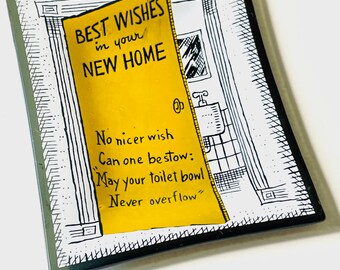 BEST WISHES
in your
NEW HOME
No nicer wish
Can one bestow:
"May your toilet bowl
Never overflow"